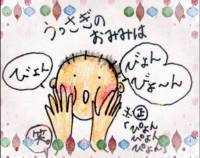 うっさぎの
おみみは
びょん
びょん
びょ〜ん
正
「ぴょん
ぴょん
ぴょん」
笑。